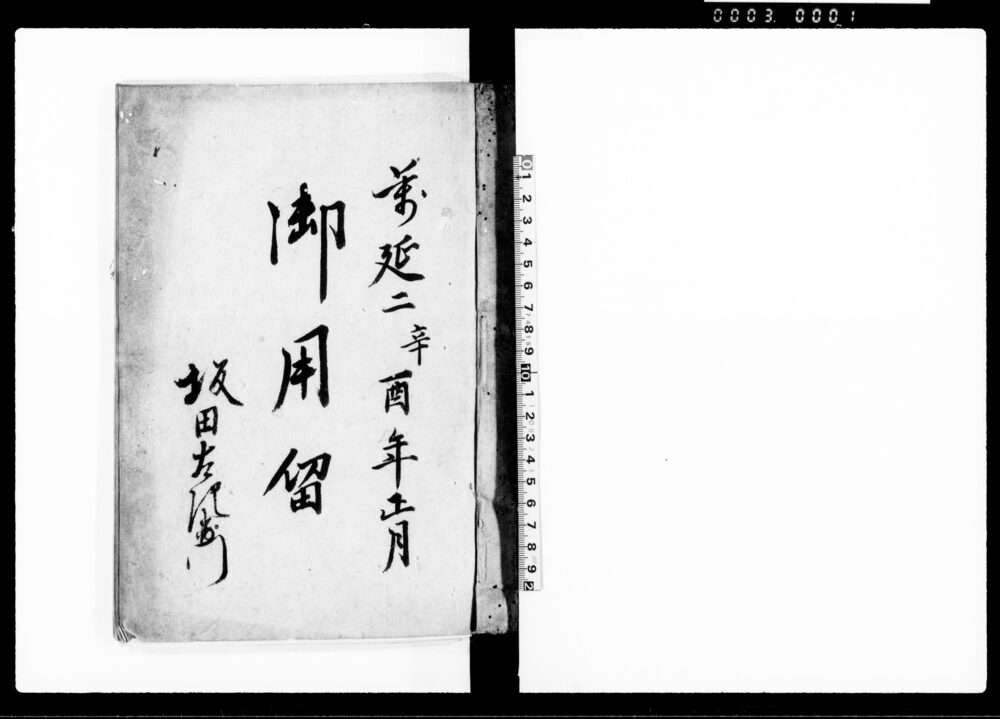 0003. 0001
萬延二辛酉年正月
御用留
坂田右近衛門
0 1 2 3 4 5 6 7 8 9 10 1 2 3 4 5 6 7 8 9 2